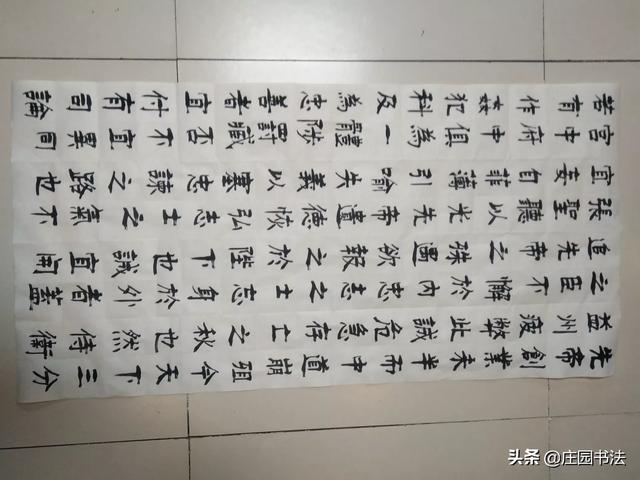 先帝創業未半而中道崩殂今天下三分
益州疲弊此誠危急存亡之秋也然侍衛
之臣不懈於內忠志之士忘身於外者蓋
追先帝之殊遇欲報之於陛下也誠宜開
張聖聽以光先帝遺德恢弘志士之氣不
宜妄自菲薄引喻失義以塞忠諫之路也
宮中府中俱為一體陟罰臧否不宜異同
若有作姦犯科及為忠善者宜付有司論
头条 @庄园书法